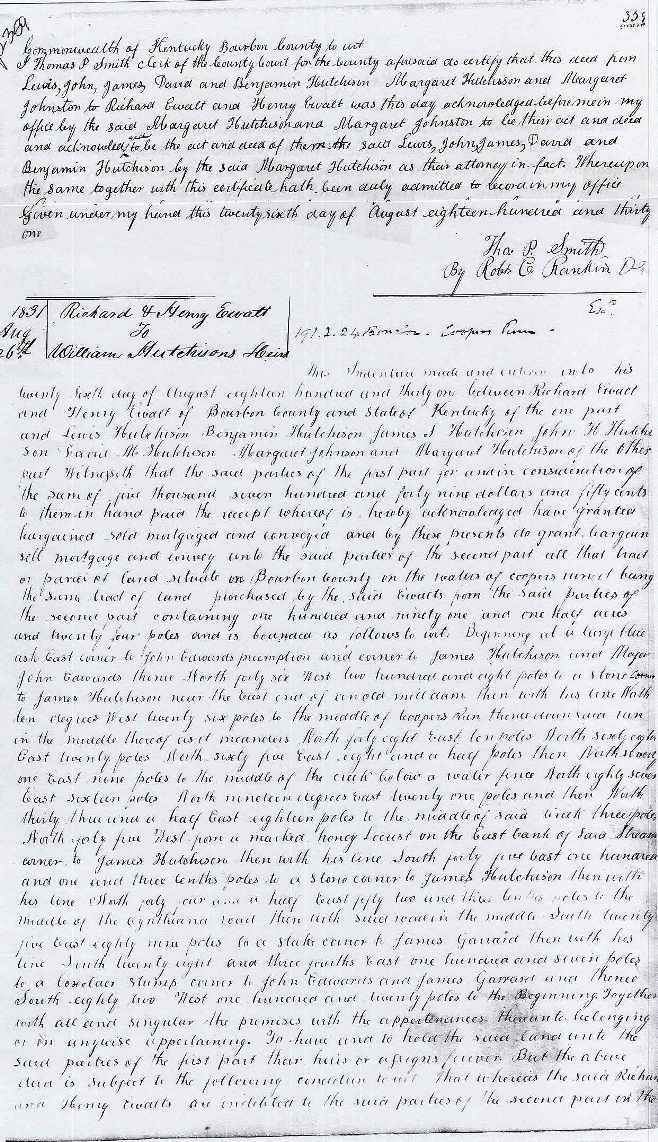 359
Commonwealth of Kentucky Bourbon County to wit
I Thomas P Smith clerk of the County Court for the County aforesaid do certify that this deed from
Lewis, John, James, David and Benjamin Hutchison Margaret Hutchisson and Margaret
Johnston to Richard Ewalt and Henry Ewalt was this day acknowledged before me in my
office by the said Margaret Hutchison and Margaret Johnston to be their act and deed
and acknowled to be the act and deed of them the said Lewis, John, James, David and
Benjamin Hutchison by the said Margaret Hutchison as their attorney in fact. Whereupon
the same together with this certificate hath been duly admitted to record in my office
Given under my hand this twenty sixth day of August eighteen hundred and thirty
one
Tho P. Smith
By Robt C Rankin D.C.
1831 Richard & Henry Ewalt
Aug To 191.2.24 Bourbon. Coopers Run
26th William Hutchisons Heirs
This Indenture made and entered into this
twenty sixth day of August eighteen hundred and thirty one between Richard Ewalt
and Henry Ewalt of Bourbon County and State of Kentucky of the one part
and Lewis Hutchison Benjamin Hutchison James S Hutchison John H Hutchi
son David M Hutchison Margaret Johnson and Margaret Hutchison of the other
part Witnesseth that the said parties of the first part for and in consideration of
the sum of five thousand seven hundred and forty nine dollars and fifty cents
to them in hand paid the receipt whereof is hereby acknowledged have granted
bargained sold mortgaged and conveyed and by these presents do grant bargain
sell mortgage and convey unto the said parties of the second part all that tract
or parcel of land situate on Bourbon County on the waters of coopers run it being
the same tract of land purchased by the said Ewalts from the said parties of
the second part containing one hundred and ninety one and one half acres
and twenty four poles and is bounded as follows to wit. Beginning at a large blue
ash East corner to John Edwards preemption and corner to James Hutchison and Major
John Edwards thence North forty six West two hundred and eight poles to a stone corner
to James Hutchison near the East end of an old mill dam then with his line North
ten degrees West twenty six poles to the middle of Coopers Run thence down said run
in the middle thereof as it meanders North forty eight East ten poles North sixty eight
East twenty poles North sixty five East eight and a half poles then North seventy
one East nine poles to the middle of the creek below a water fence North eighty seven
East sixteen poles North nineteen degrees East twenty one poles and then North
thirty three and a half East eighteen poles to the middle of said creek three poles
North forty five West from a marked honey Locust on the East bank of said Stream
corner to James Hutchison then with his line South forty five East one hundred
and one and three tenths poles to a stone corner to James Hutchison then with
his line North forty four and a half East fifty two and three tenths poles to the
middle of the Cynthiana road then with said road in the middle South twenty
five East eighty nine poles to a stake corner to James Garrard then with his
line South twenty eight and three fourths East one hundred and seven poles
to a boxelder stump corner to John Edwards and James Garrard and thence
South eighty two West one hundred and twenty poles to the Beginning Together
with all and singular the premises with the appertenances thereunto belonging
or in anywise appertaining. To have and to hold the said land unto the
said parties of the first part their heirs or assigns forever But the above
deed is subject to the following condition to wit That whereas the said Richard
and Henry Ewalts are indebted to the said parties of the second part in the